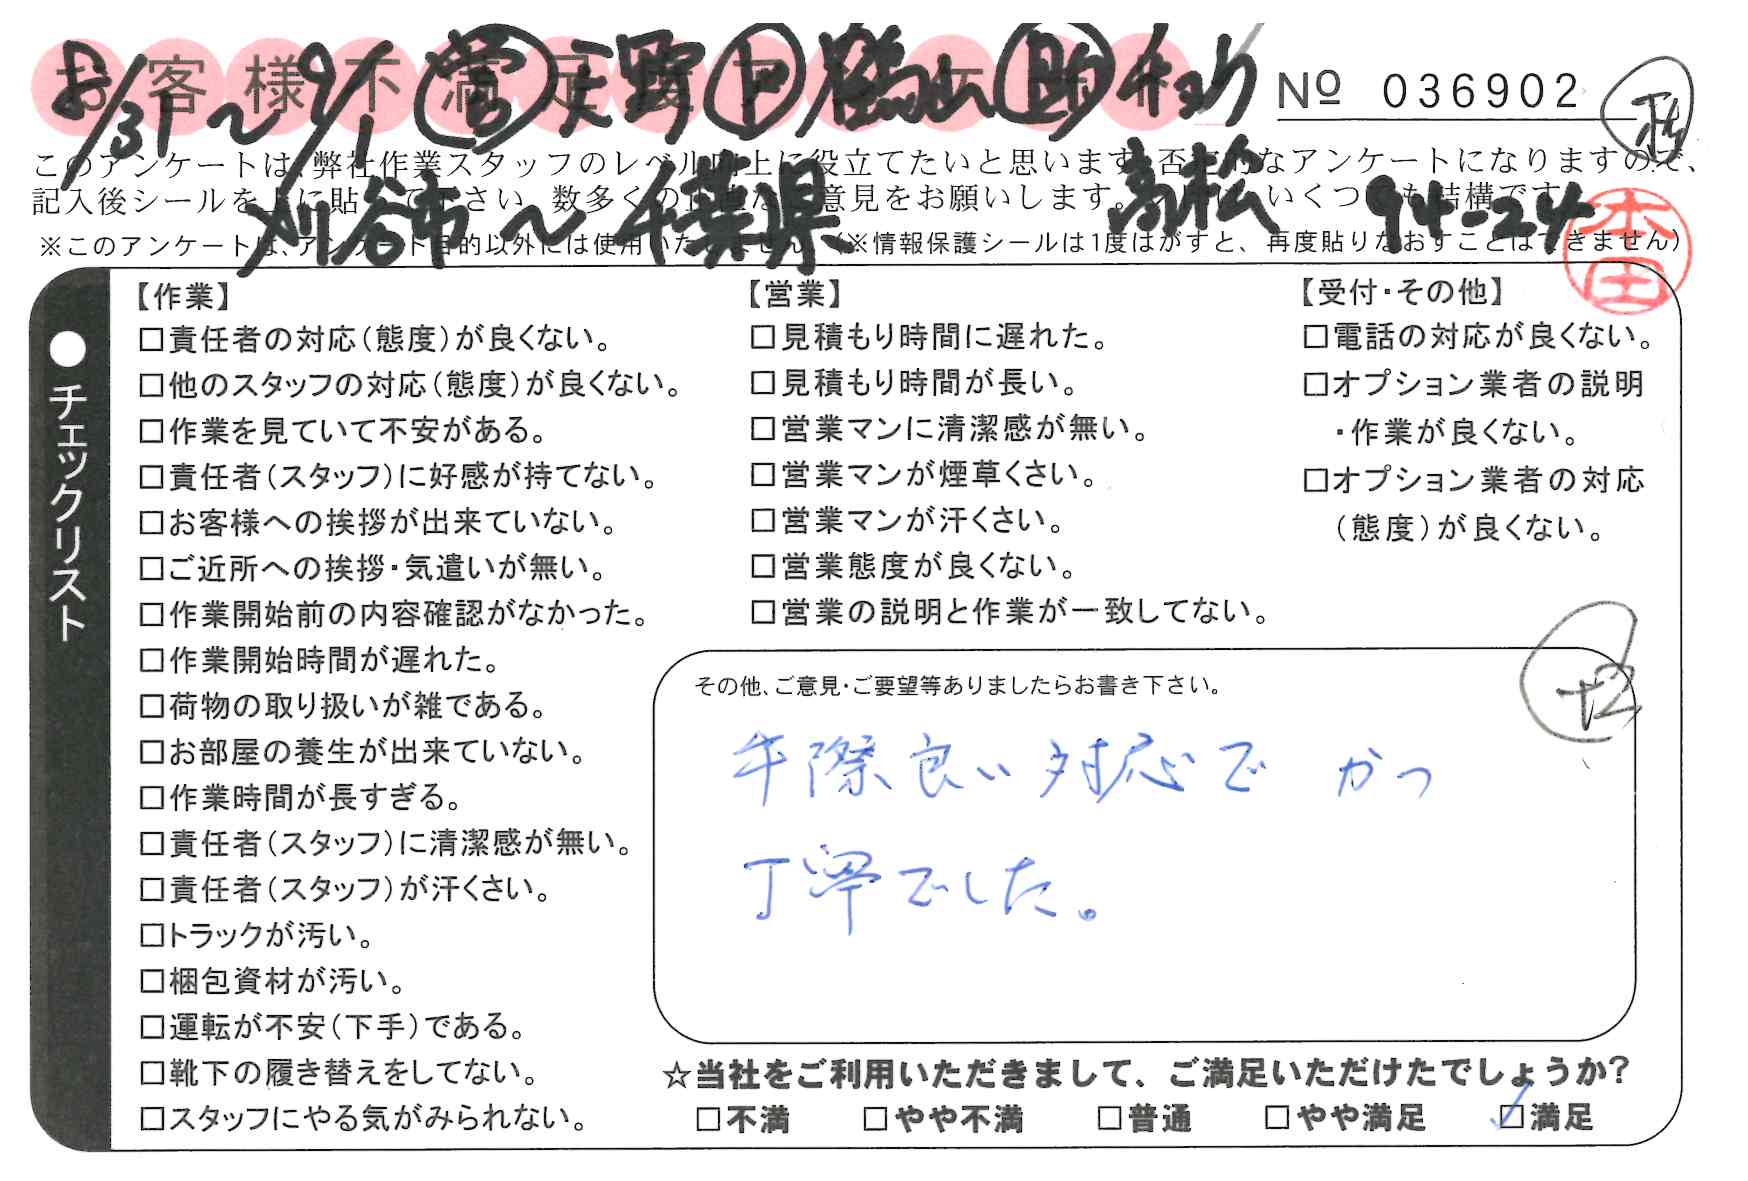 お客様不満足度アンケート
8/31～9/1 営 天野 ト 鶴山 助 チョリ
No 036902
このアンケートは、弊社作業スタッフのレベル向上に役立てたいと思います。否定的なアンケートになりますので、
記入後シールを上に貼って下さい。数多くの正直なご意見をお願いします。 いくつでも結構です
刈谷市～千葉県 高松 94-24
本田
※このアンケートは、アンケート目的以外には使用いたしません。(※情報保護シールは1度はがすと、再度貼りなおすことはできません)
●チェックリスト
【作業】
□責任者の対応(態度)が良くない。
□他のスタッフの対応(態度)が良くない。
□作業を見ていて不安がある。
□責任者(スタッフ)に好感が持てない。
□お客様への挨拶が出来ていない。
□ご近所への挨拶・気遣いが無い。
□作業開始前の内容確認がなかった。
□作業開始時間が遅れた。
□荷物の取り扱いが雑である。
□お部屋の養生が出来ていない。
□作業時間が長すぎる。
□責任者(スタッフ)に清潔感が無い。
□責任者(スタッフ)が汗くさい。
□トラックが汚い。
□梱包資材が汚い。
□運転が不安(下手)である。
□靴下の履き替えをしてない。
□スタッフにやる気がみられない。
【営業】
□見積もり時間に遅れた。
□見積もり時間が長い。
□営業マンに清潔感が無い。
□営業マンが煙草くさい。
□営業マンが汗くさい。
□営業態度が良くない。
□営業の説明と作業が一致してない。
【受付・その他】
□電話の対応が良くない。
□オプション業者の説明
・作業が良くない。
□オプション業者の対応
(態度)が良くない。
その他、ご意見・ご要望等ありましたらお書き下さい。
+2
手際良い対応で かつ
丁寧でした。
☆当社をご利用いただきまして、ご満足いただけたでしょうか?
□不満 □やや不満 □普通 □やや満足 ☑満足